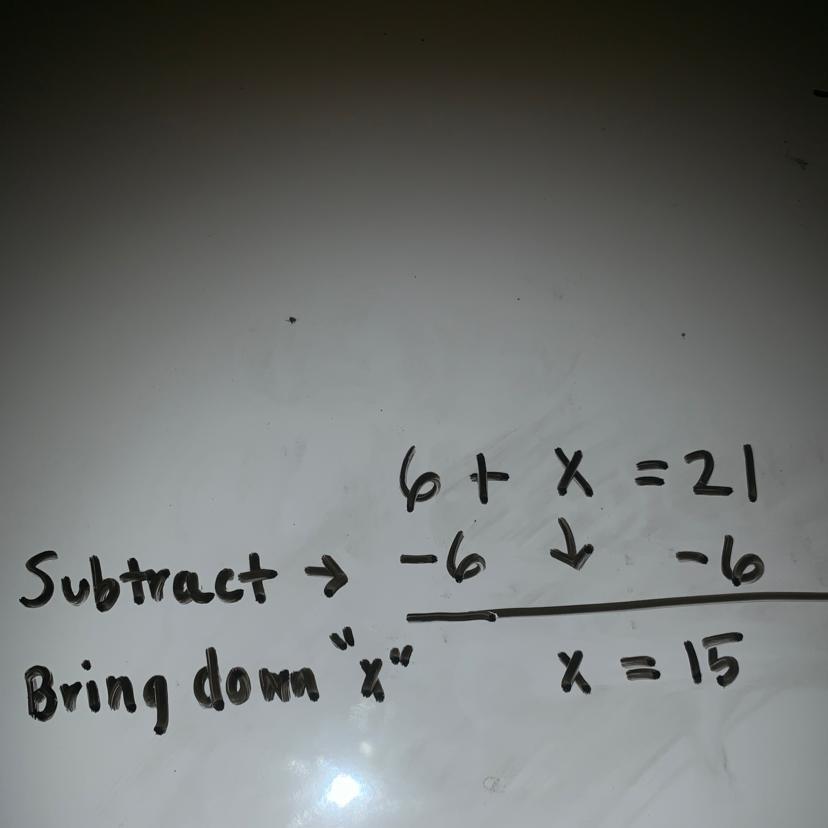 6 + x = 21
Subtract → -6 ↓ -6
Bring down "x" x = 15